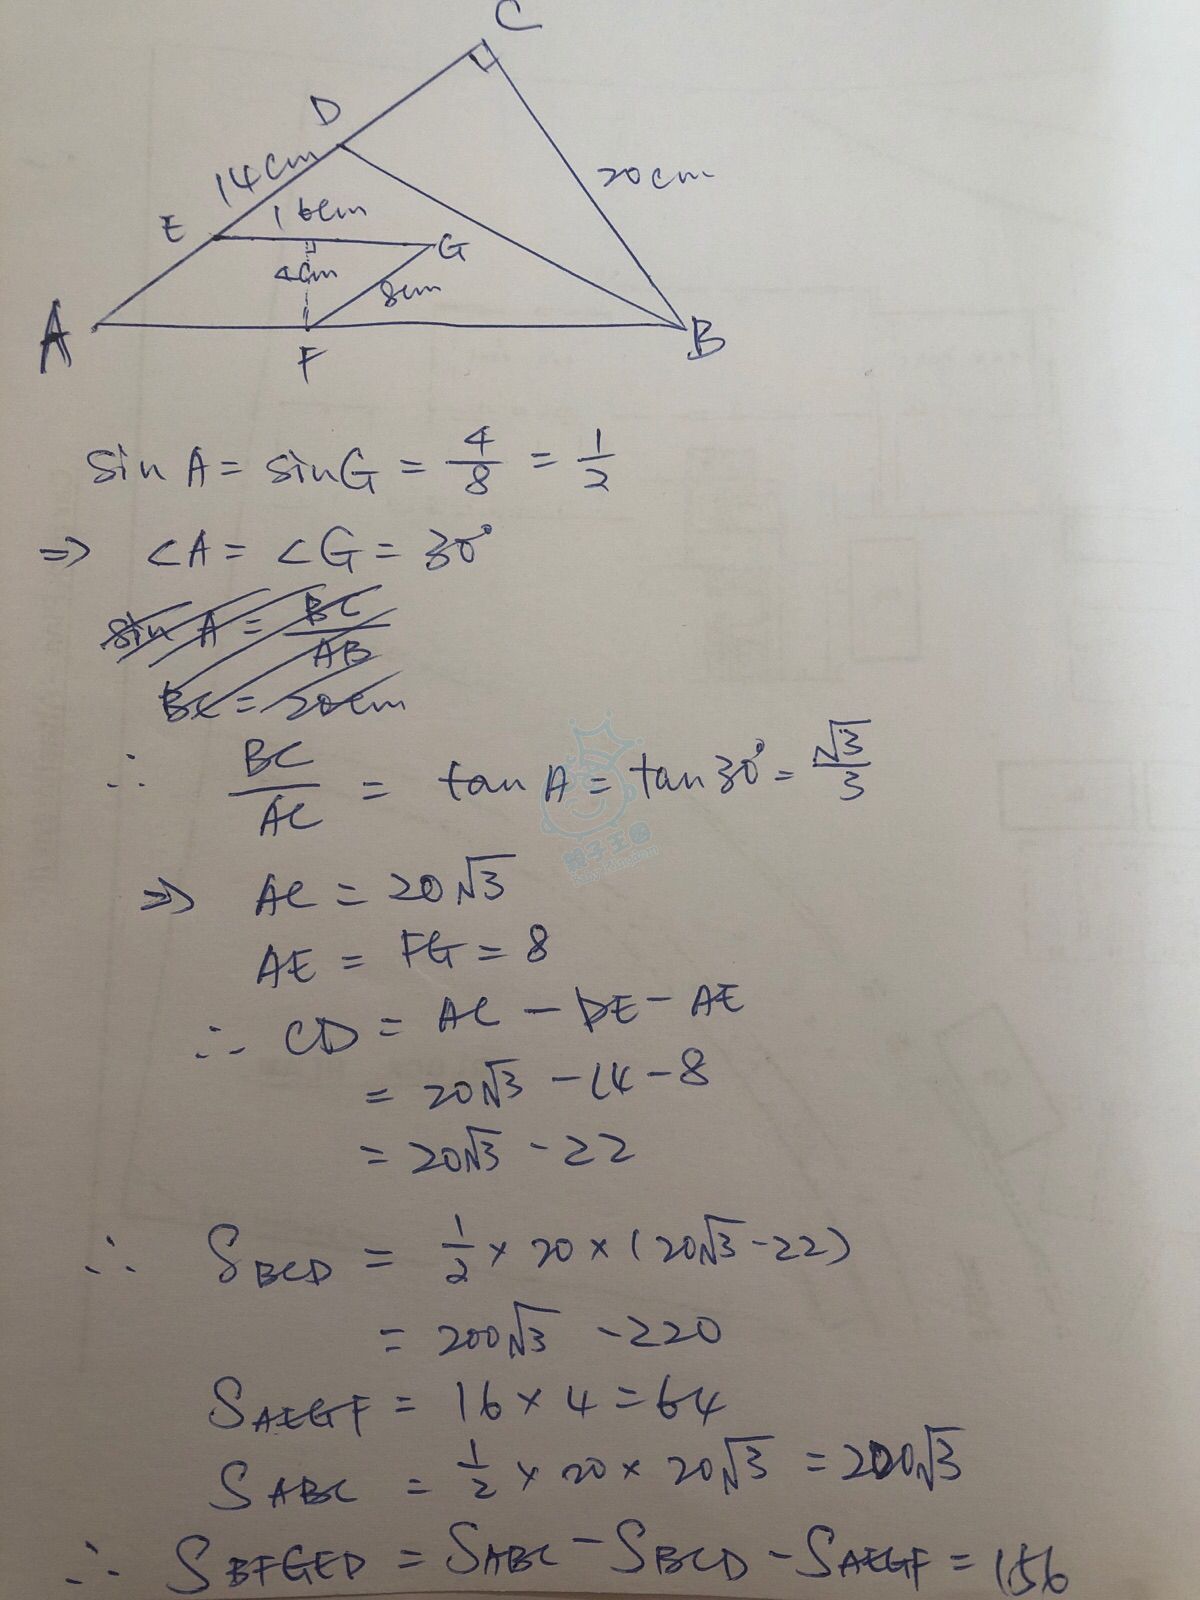 C
D
14cm
20cm
E
16cm
G
4cm
8cm
A
F
B
sin A = sin G = 4/8 = 1/2
⇒ ∠A = ∠G = 30°
sin A = BC/AB
BC = 20cm
∴ BC/AC = tan A = tan 30° = √3/3
⇒ AC = 20√3
AE = FG = 8
∴ CD = AC - DE - AE
= 20√3 - 14 - 8
= 20√3 - 22
∴ S BCD = 1/2 × 20 × (20√3 - 22)
= 200√3 - 220
S AEGF = 16 × 4 = 64
S ABC = 1/2 × 20 × 20√3 = 200√3
∴ S BFGED = S ABC - S BCD - S AEGF = 156
親子王國
Baby Kingdom